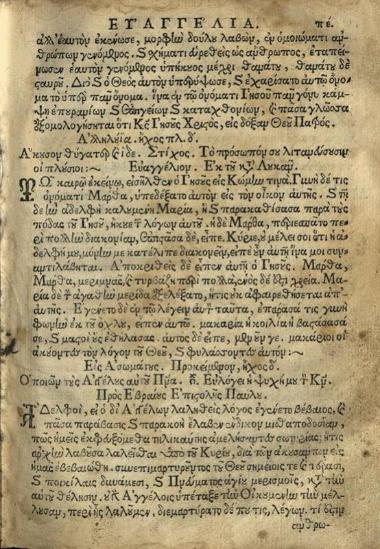 ΕΥΑΓΓΕΛΙΑ. πέ.
ἀλλ' ἑαυτὸν ἐκένωσε, μορφὴν δούλου λαβών, ἐν ὁμοιώματι ἀν
θρώπων γενόμενος. καὶ σχήματι εὑρεθεὶς ὡς ἄνθρωπος, ἐταπεί
νωσεν ἑαυτὸν γενόμενος ὑπήκοος μέχρι θανάτου, θανάτου δὲ
σταυροῦ. Διὸ καὶ ὁ Θεὸς αὐτὸν ὑπερύψωσε, καὶ ἐχαρίσατο αὐτῷ ὄνο
μα τὸ ὑπὲρ πᾶν ὄνομα. ἵνα ἐν τῷ ὀνόματι Ἰησοῦ πᾶν γόνυ κάμ
ψῃ ἐπουρανίων καὶ ἐπιγείων καὶ καταχθονίων, καὶ πᾶσα γλῶσσα
ἐξομολογήσηται ὅτι Κύριος Ἰησοῦς Χριστός, εἰς δόξαν Θεοῦ Πατρός.
Ἀλληλούϊα. ἦχος πλ. δ'.
Ἄκουσον θύγατερ καὶ ἴδε. Στίχος. Τὸ πρόσωπόν σου λιτανεύσουσιν
οἱ πλούσιοι: — Εὐαγγέλιον. Ἐκ τοῦ κατὰ Λουκᾶν.
Τῷ καιρῷ ἐκείνῳ, εἰσῆλθεν ὁ Ἰησοῦς εἰς κώμην τινά. Γυνὴ δέ τις
ὀνόματι Μάρθα, ὑπεδέξατο αὐτὸν εἰς τὸν οἶκον αὐτῆς. καὶ τῇ
δε ἦν ἀδελφὴ καλουμένη Μαρία, ἣ καὶ παρακαθίσασα παρὰ τοὺς
πόδας τοῦ Ἰησοῦ, ἤκουε τὸν λόγον αὐτοῦ. ἡ δὲ Μάρθα, περιεσπᾶτο πε
ρὶ πολλὴν διακονίαν, ἐπιστᾶσα δέ, εἶπε. Κύριε, οὐ μέλει σοι ὅτι ἡ ἀ
δελφή μου, μόνην με κατέλιπε διακονεῖν, εἰπὲ οὖν αὐτῇ ἵνα μοι συν
αντιλάβηται. Ἀποκριθεὶς δὲ εἶπεν αὐτῇ ὁ Ἰησοῦς. Μάρθα,
Μάρθα, μεριμνᾷς καὶ τυρβάζῃ περὶ πολλά, ἑνὸς δέ ἐστι χρεία. Μα
ρία δὲ τὴν ἀγαθὴν μερίδα ἐξελέξατο, ἥτις οὐκ ἀφαιρεθήσεται ἀπ'
αὐτῆς. Ἐγένετο δὲ ἐν τῷ λέγειν αὐτὸν ταῦτα, ἐπάρασά τις γυνὴ
φωνὴν ἐκ τοῦ ὄχλου, εἶπεν αὐτῷ. μακαρία ἡ κοιλία ἡ βαστάσασά
σε, καὶ μαστοὶ οὓς ἐθήλασας. αὐτὸς δὲ εἶπε, μενοῦνγε. μακάριοι οἱ
ἀκούοντες τὸν λόγον τοῦ Θεοῦ, καὶ φυλάσσοντες αὐτόν: —
Εἰς Ἀσωμάτους. Προκείμενον, ἦχος δ'.
Ὁ ποιῶν τοὺς Ἀγγέλους αὐτοῦ Πνεύματα. Στίχ. Εὐλόγει ἡ ψυχή μου τὸν Κύριον.
Πρὸς Ἑβραίους Ἐπιστολῆς Παύλου.
Ἀδελφοί, εἰ ὁ δι' Ἀγγέλων λαληθεὶς λόγος ἐγένετο βέβαιος, καὶ
πᾶσα παράβασις καὶ παρακοὴ ἔλαβεν ἔνδικον μισθαποδοσίαν,
πῶς ἡμεῖς ἐκφευξόμεθα τηλικαύτης ἀμελήσαντες σωτηρίας; ἥτις
ἀρχὴν λαβοῦσα λαλεῖσθαι διὰ τοῦ Κυρίου, ὑπὸ τῶν ἀκουσάντων εἰς
ἡμᾶς ἐβεβαιώθη. συνεπιμαρτυροῦντος τοῦ Θεοῦ σημείοις τε καὶ τέρασι,
καὶ ποικίλαις δυνάμεσι, καὶ Πνεύματος ἁγίου μερισμοῖς, κατὰ τὴν
αὐτοῦ θέλησιν. οὐ γὰρ Ἀγγέλοις ὑπέταξε τὴν Οἰκουμένην τὴν μέλ
λουσαν, περὶ ἧς λαλοῦμεν. διεμαρτύρατο δέ πού τις, λέγων. τί ἐστιν
ἄνθρω-